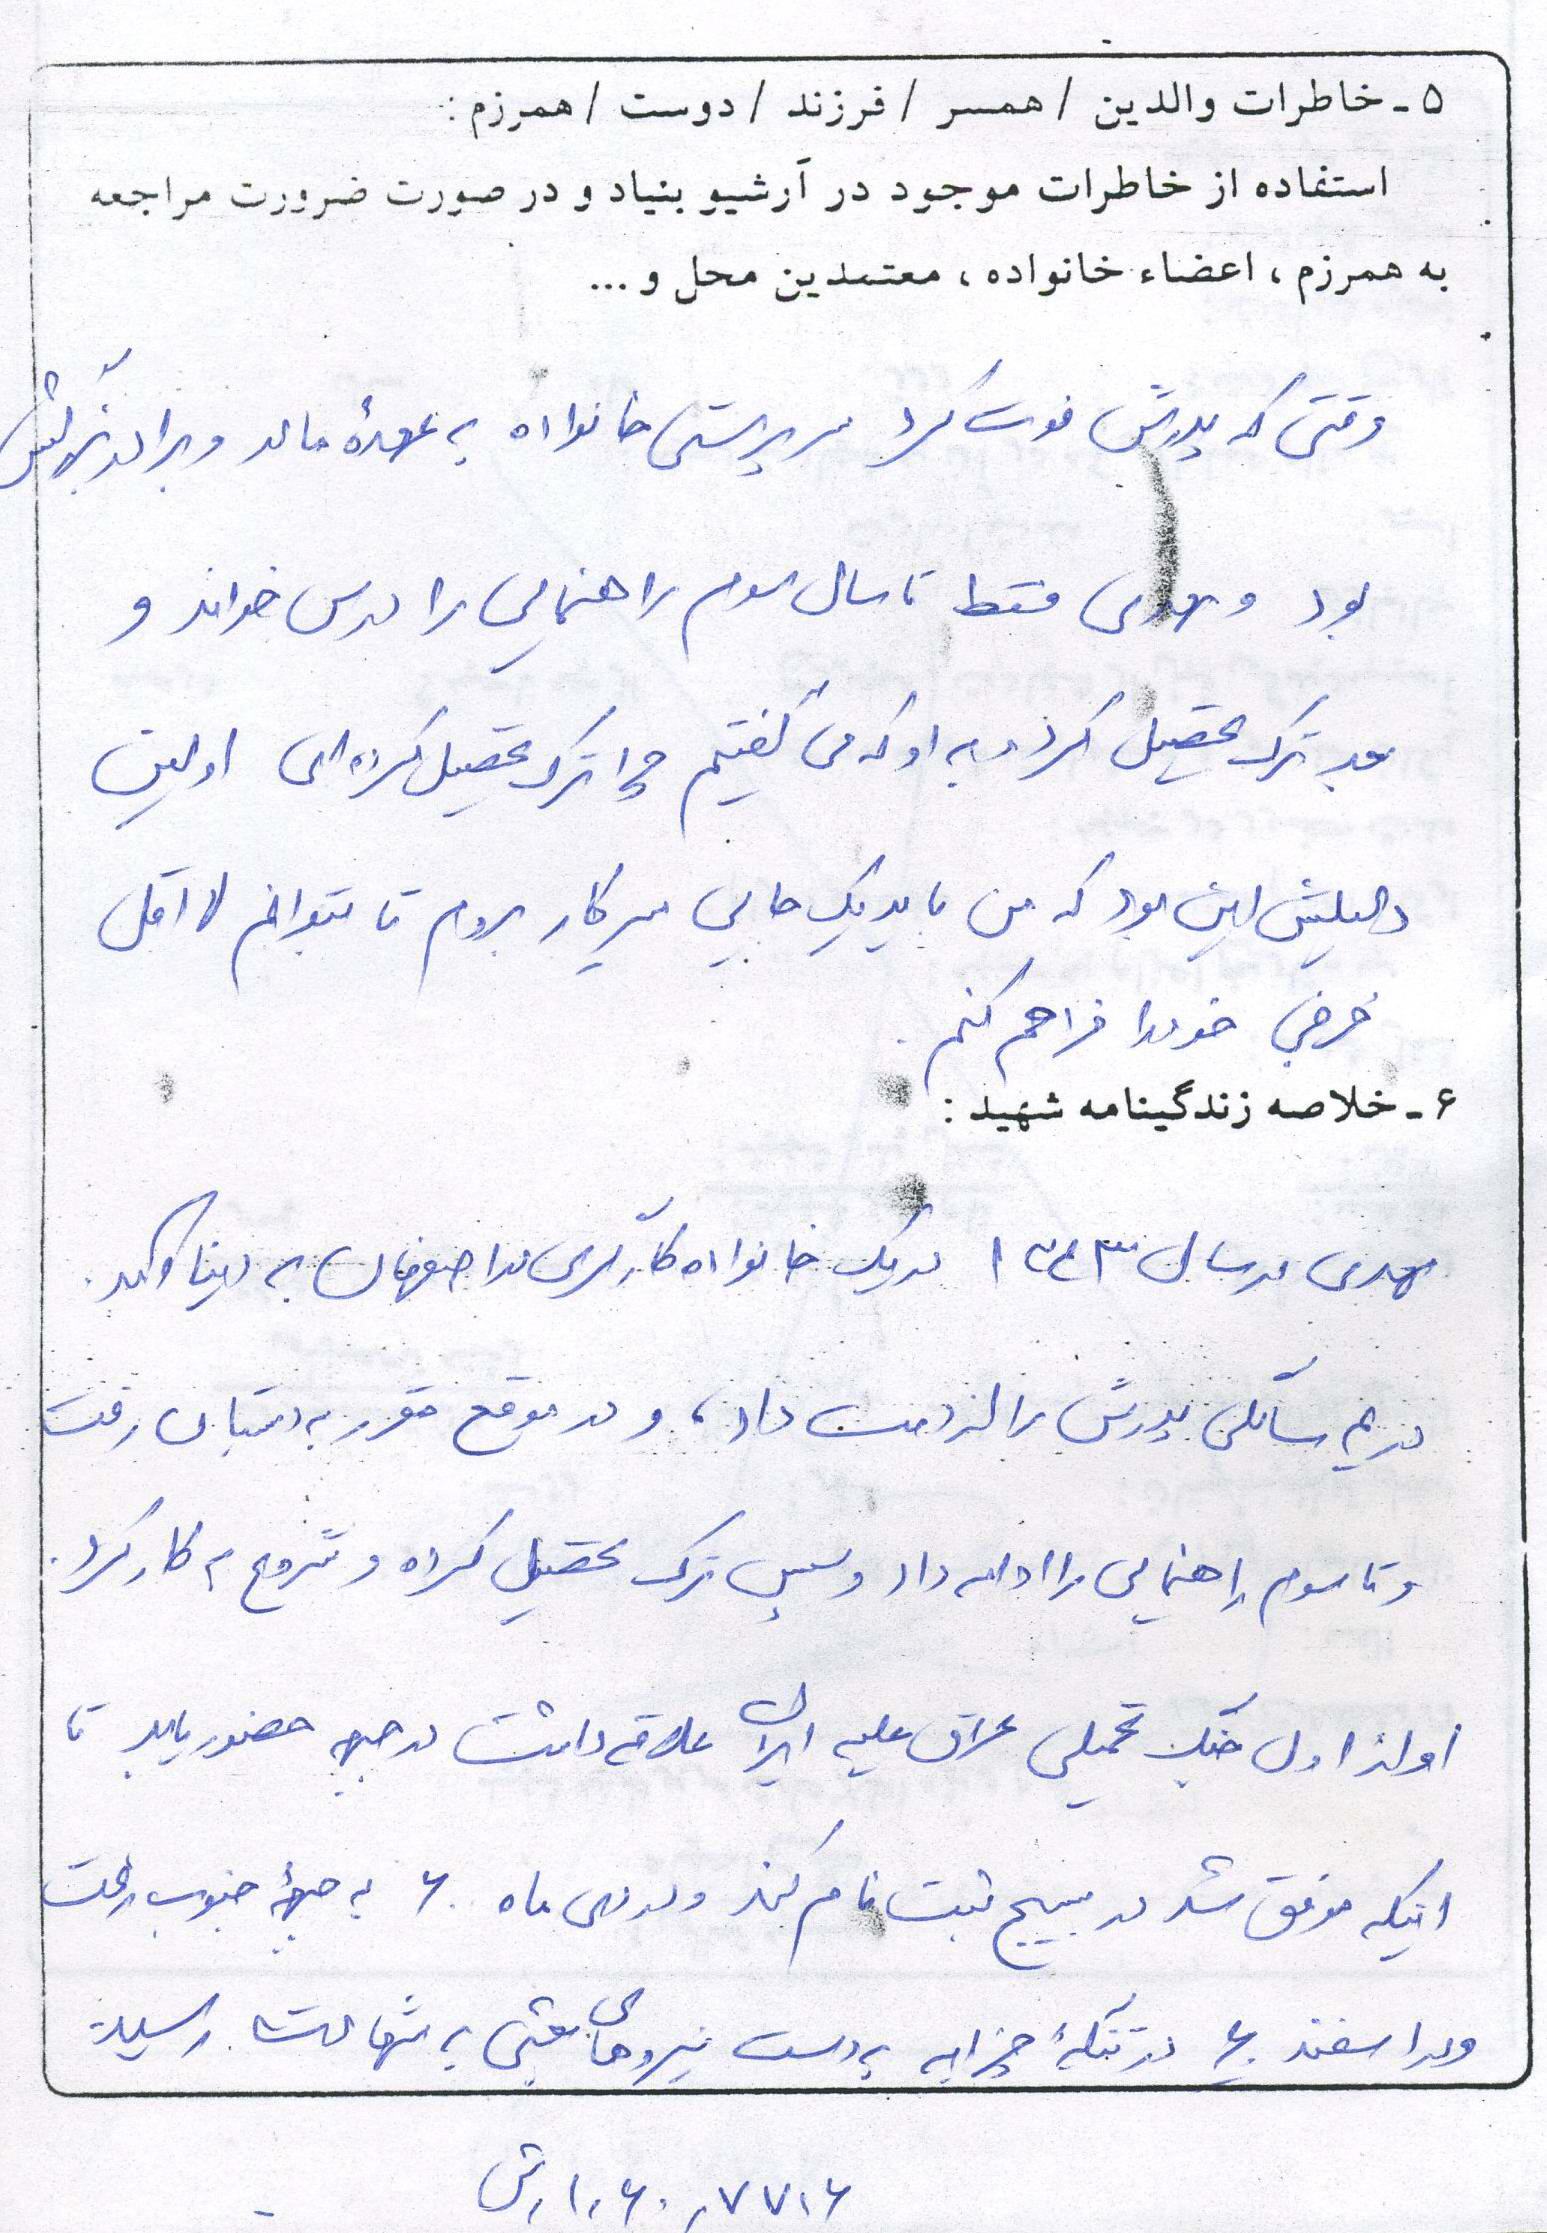 ۵ ـ خاطرات والدین / همسر / فرزند / دوست / همرزم :
استفاده از خاطرات موجود در آرشیو بنیاد و در صورت ضرورت مراجعه
به همرزم ، اعضاء خانواده ، معتمدین محل و ...
وقتی که پدرش فوت کرد سرپرستی خانواده به عهدهٔ مادر و برادر بزرگش
بود و مهدی فقط تا سال سوم راهنمایی را درس خواند و
بعد ترک تحصیل کرد و به او که می گفتیم چرا ترک تحصیل کرده ای اولین
دلیلش این بود که من باید یک جایی سر کار بروم تا بتوانم لااقل
خرجی خود را فراهم کنم .
۶ ـ خلاصه زندگینامه شهید :
مهدی در سال ۱۳۴۳ در یک خانواده کارگری در اصفهان به دنیا آمد .
در سالگی پدرش را از دست داد ، و در موقع مقرر به دبستان رفت
و تا سوم راهنمایی را ادامه داد و سپس ترک تحصیل کرده و شروع به کار کرد .
او از اول جنگ تحمیلی عراق علیه ایران علاقه داشت در جبهه حضور یابد تا
اینکه موفق شد در بسیج ثبت نام کند و در دی ماه ۶۰ به جبههٔ جنوب رفت
و در اسفند ۶۰ در تنگهٔ چزابه به دست نیروهای بعثی به شهادت رسید